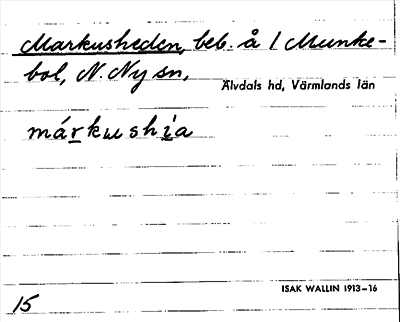 Markusheden, beb. å 1 Munke-
bol, N. Ny sn,
Älvdals hd, Värmlands län
márkushia
ISAK WALLIN 1913-16
15